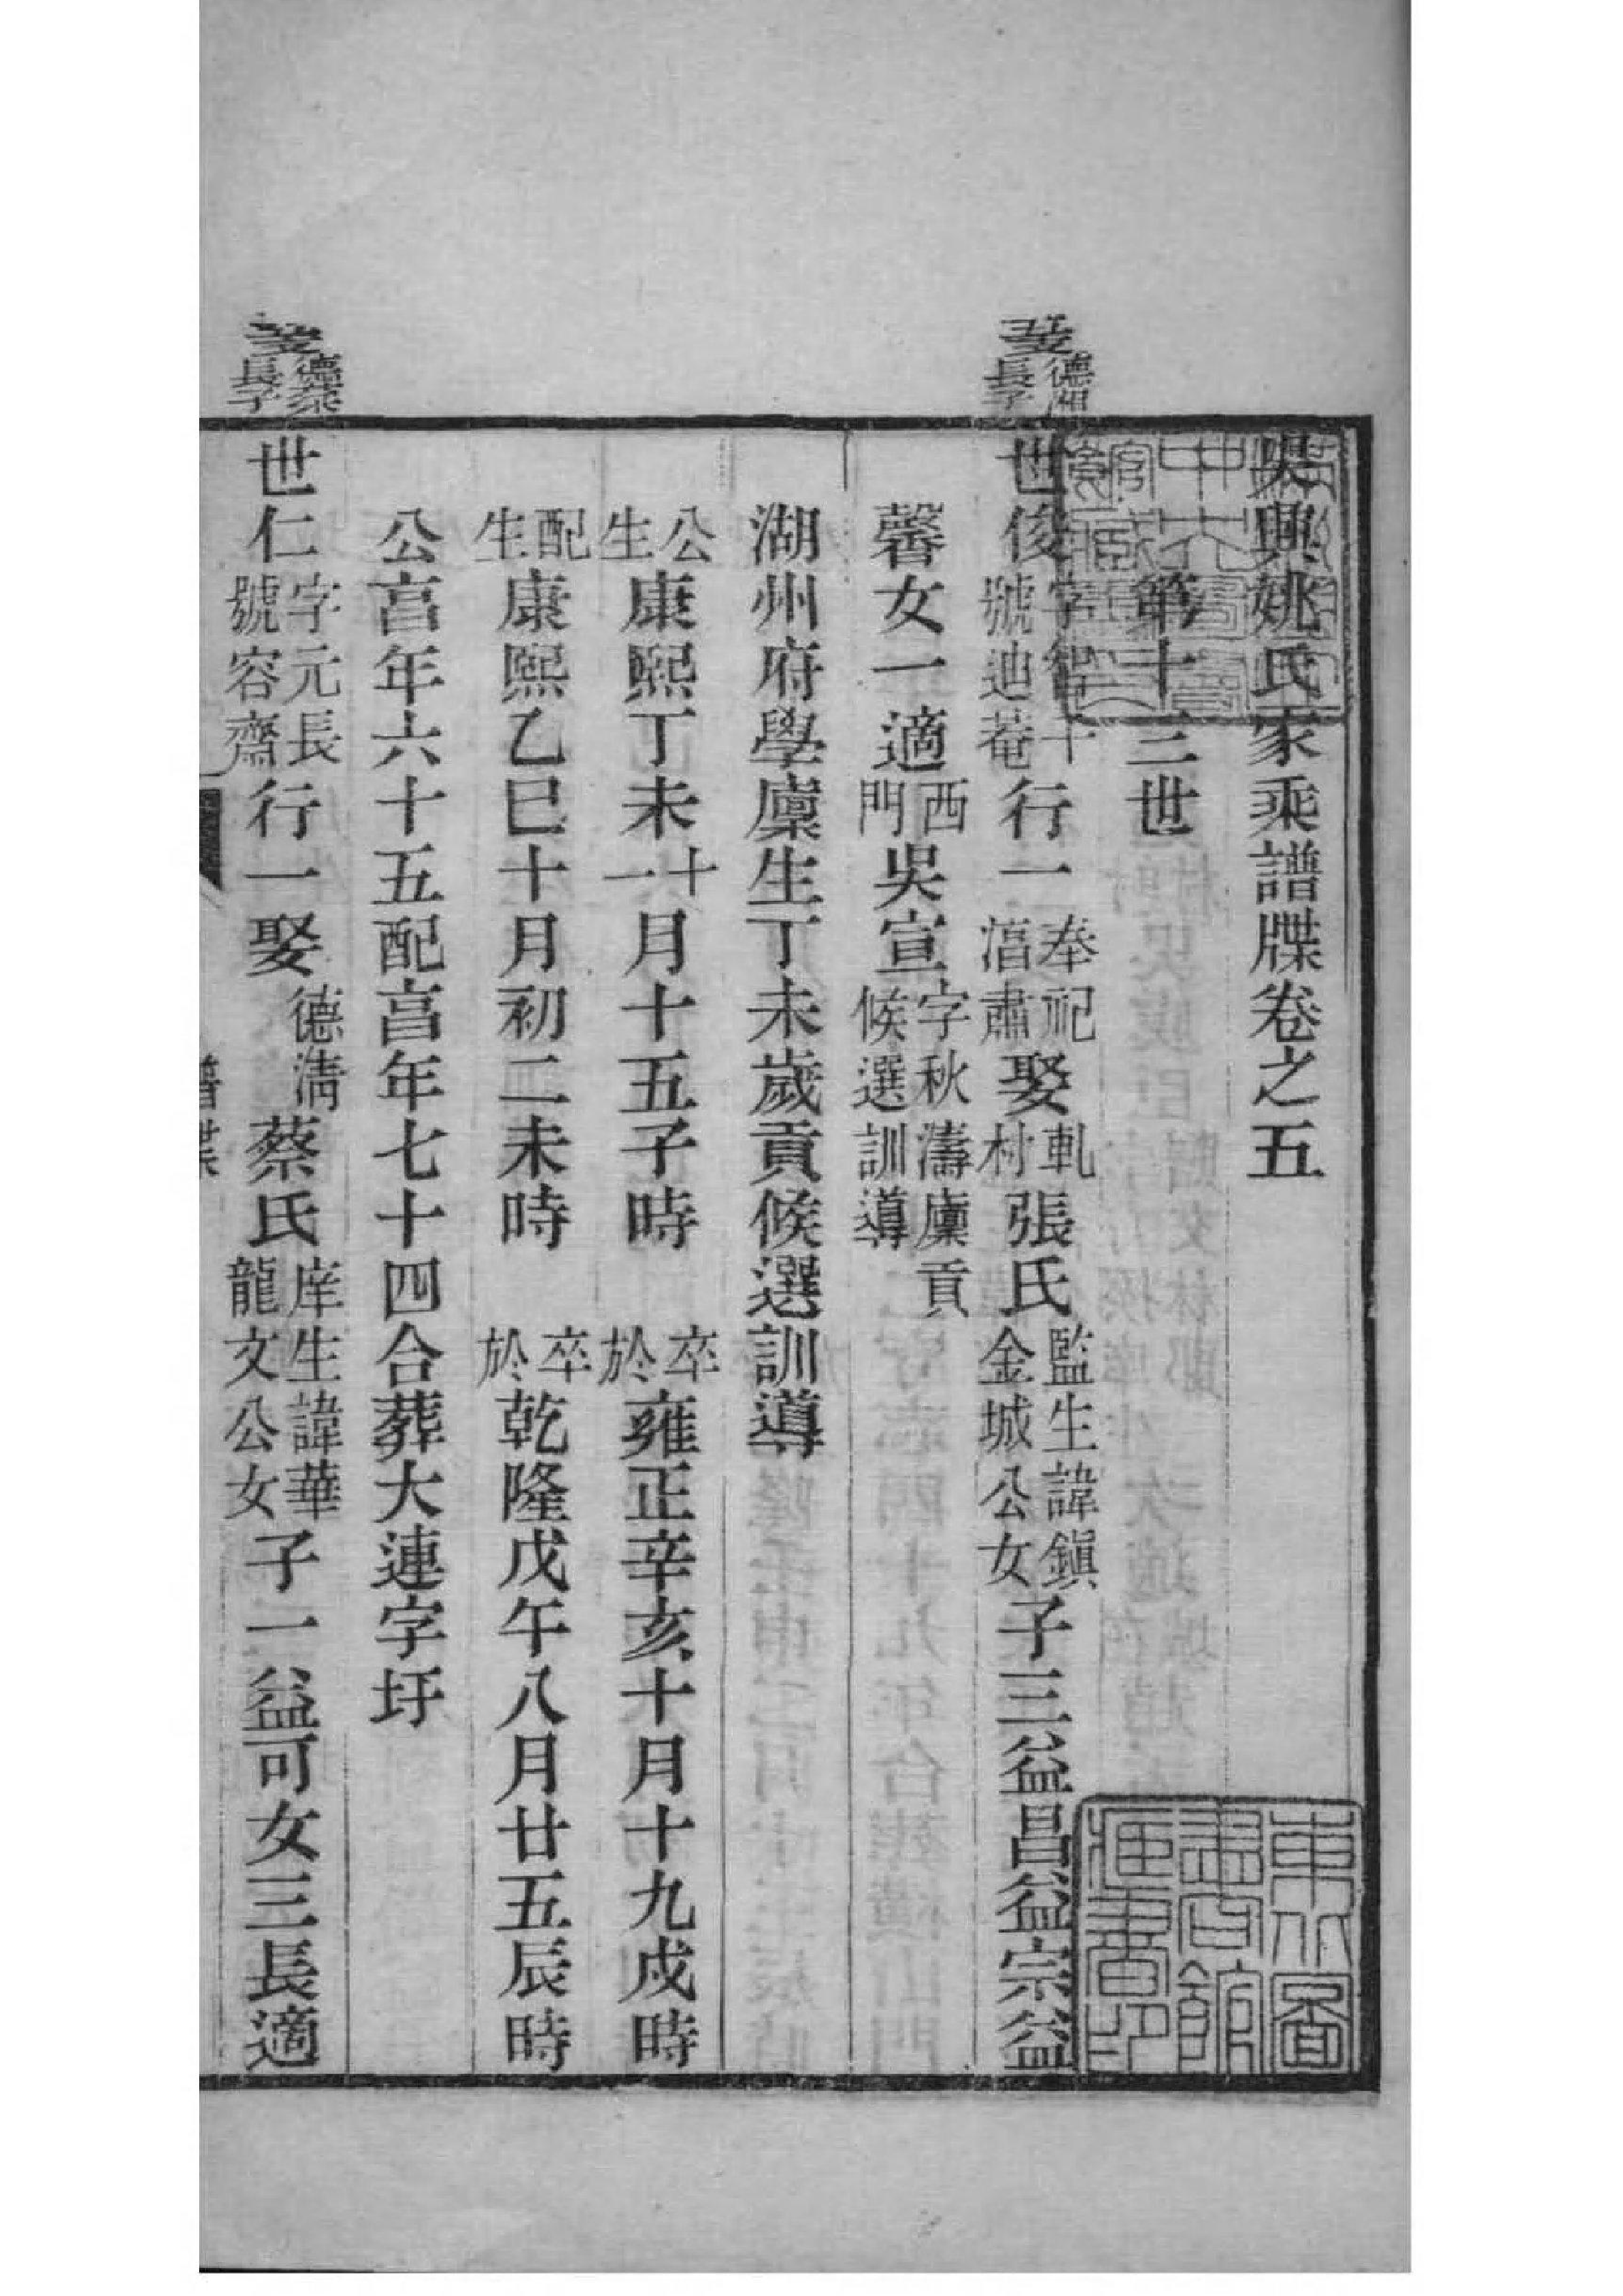 吳興姚氏家乘譜牒卷之五
第十三世
長子
世俊 字 千 號迪菴 行一 奉祀 湻肅 娶 軋村 張氏 監生諱鎭 金城公女 子三益昌益宗益
馨女一適 西門 吳宣 字秋濤廩貢 候選訓導
湖州府學廩生丁未歲貢候選訓導
公生 康熙丁未十一月十五子時 卒於 雍正辛亥十月十九戌時
配生 康熙乙巳十月初二未時 卒於 乾隆戊午八月廿五辰時
公亯年六十五配亯年七十四合葬大連字圩
長子
世仁 字元長 號容齋 行一娶 德淸 蔡氏 庠生諱華 龍文公女 子一益可女三長適
東方圖書館藏書印